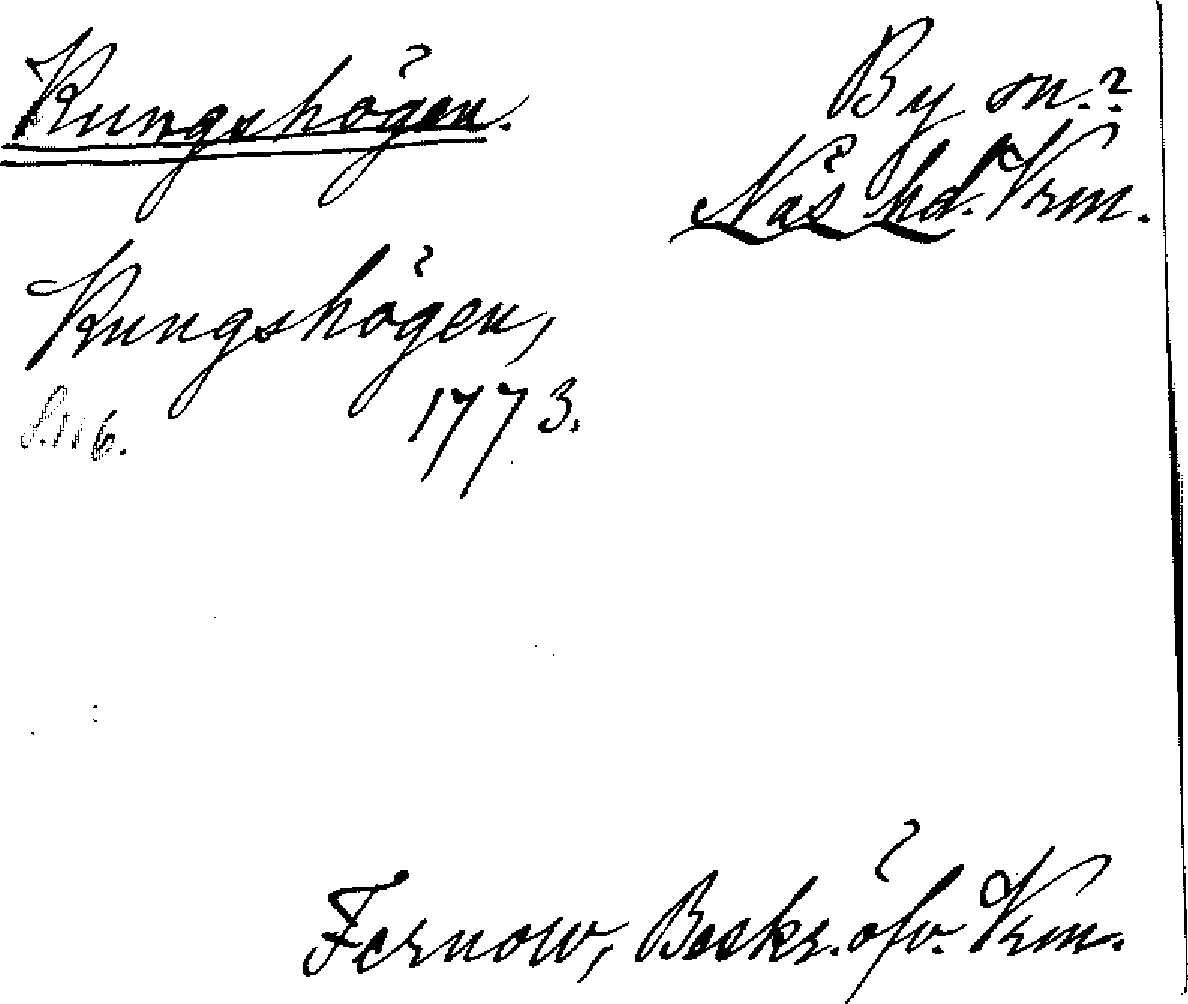 Kungshögen.
By sn.?
Näs hd. Vrm.
Kungshögen,
1773.
S. 116.
Fernow, Beskr. öfv. Vrm.